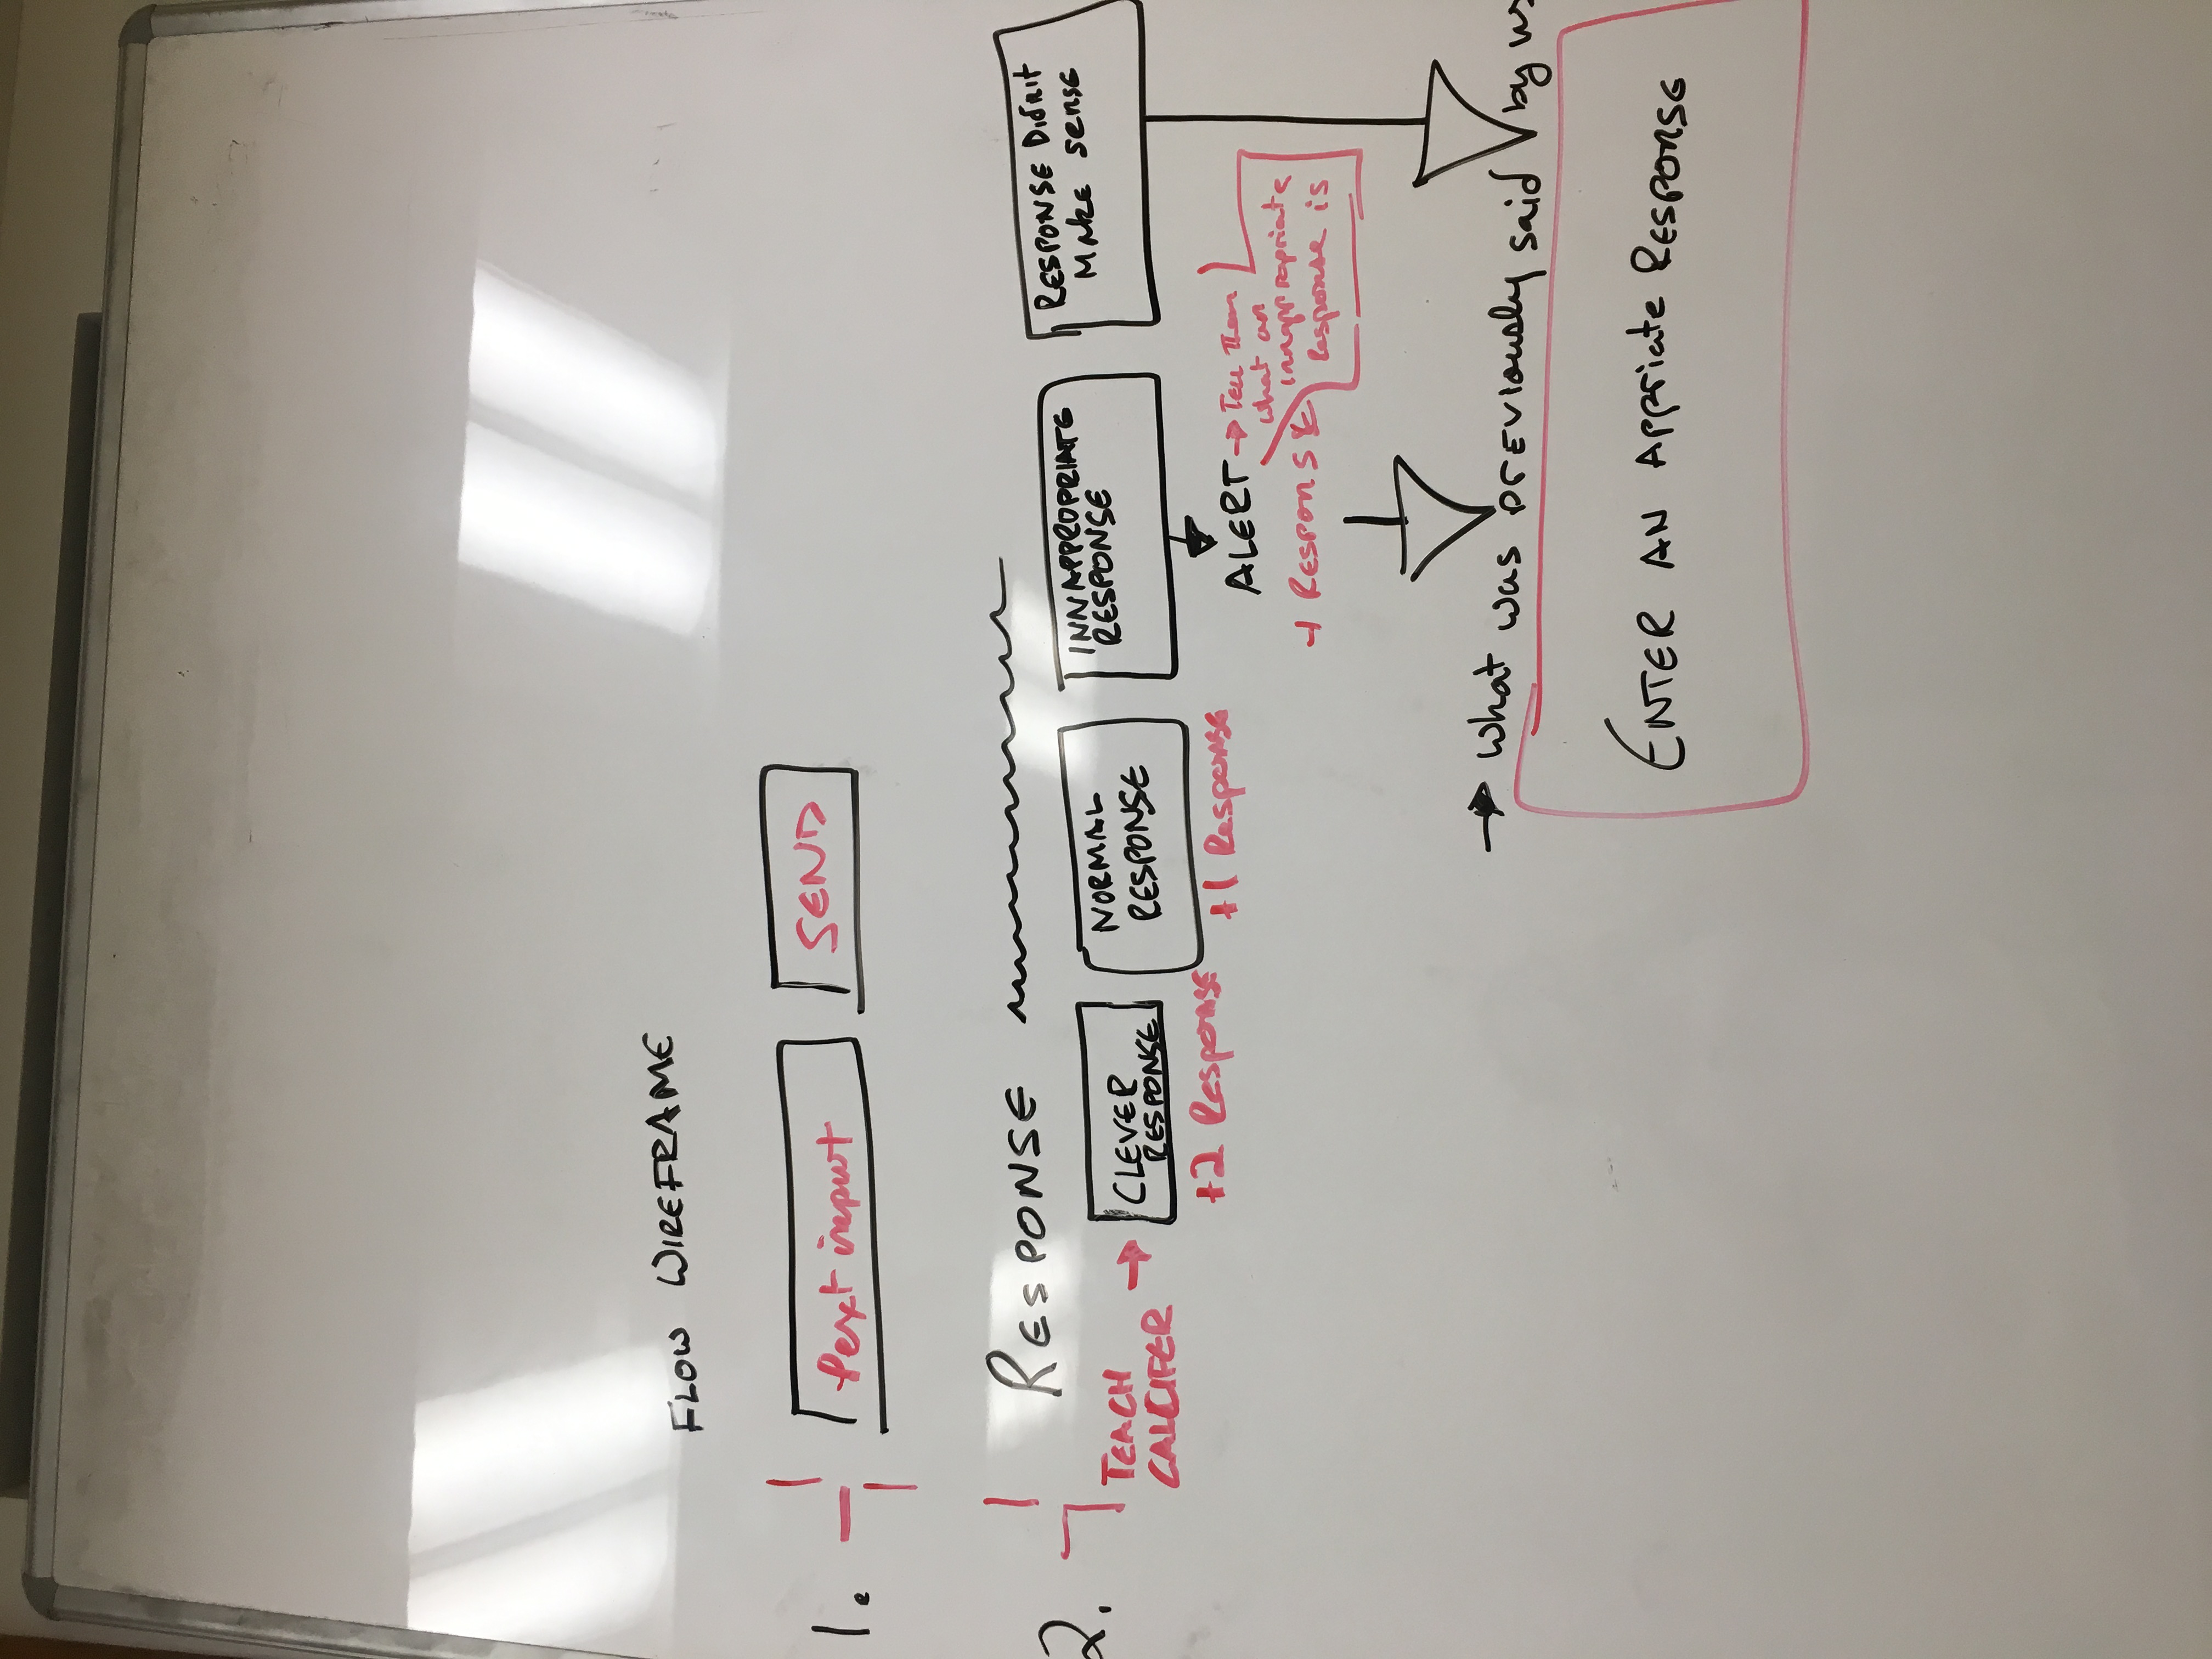 FLOW WIREFRAME
1.
Text input
SEND
2.
RESPONSE
TEACH
CALCIFER
CLEVER
RESPONSE
+2 Response
NORMAL
RESPONSE
+1 Response
INNAPPROPRIATE
RESPONSE
ALERT
Tell Them
what an
innappropriate
Response is
-1 RESPONSE
RESPONSE Didn't
MAKE SENSE
What was previously said by us
ENTER AN Appriate RESPONSE